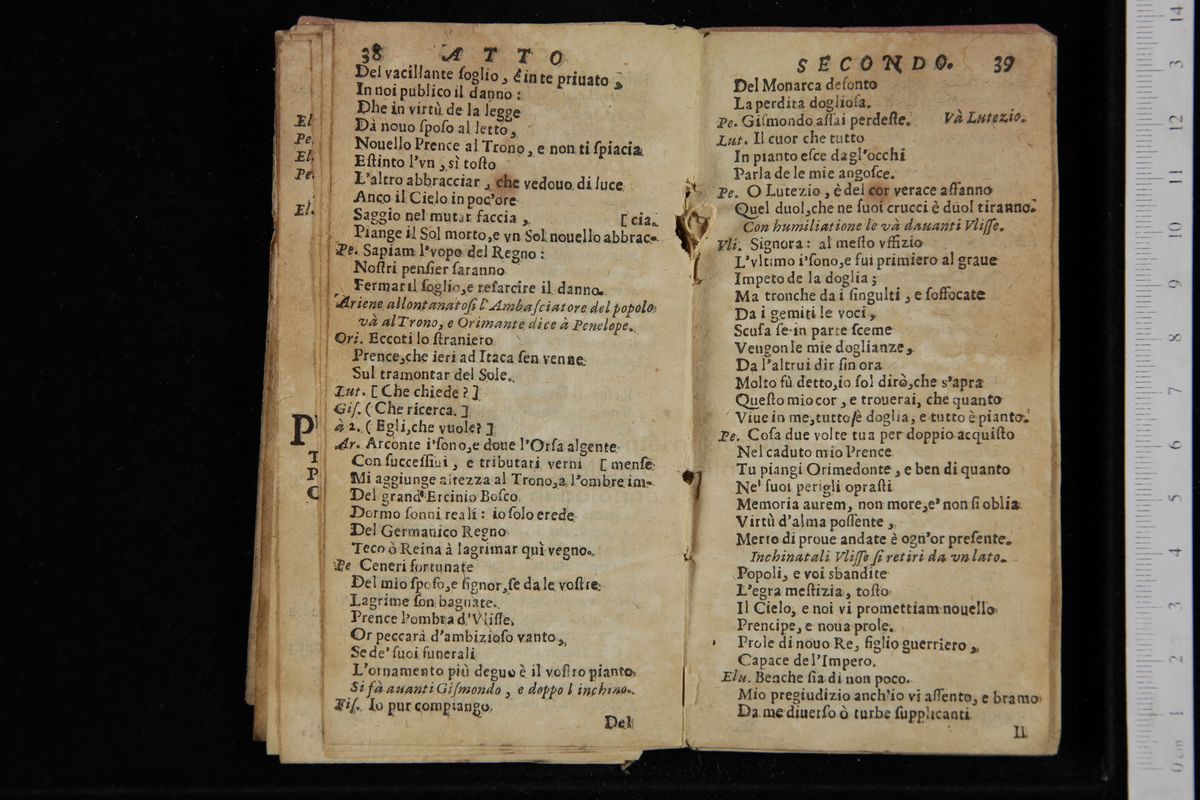 38 ATTO
Del vacillante ſoglio, è in te priuato,
In noi publico il danno:
Dhe in virtù de la legge
Dà nouo ſpoſo al letto,
Nouello Prence al Trono, e non ti ſpiacia
Eſtinto l'vn, sì toſto
L'altro abbracciar, che vedouo di luce
Anco il Cielo in poc'ore
Saggio nel mutar faccia, [cia.
Piange il Sol morto, e vn Sol nouello abbrac-
Pe. Sapiam l'vopo del Regno:
Noſtri penſier ſaranno
Fermar il ſoglio, e reſarcire il danno.
Ariene allontanatoſi l'Ambaſciatore del popolo
và al Trono, e Orimante dice à Penelope.
Ori. Eccoti lo ſtraniero
Prence, che ieri ad Itaca ſen venne
Sul tramontar del Sole.
Lut. [Che chiede?]
Giſ. (Che ricerca.]
à 2. (Egli, che vuole?]
Ar. Arconte i'ſono, e doue l'Orſa algente
Con ſucceſſiui, e tributari verni [menſe
Mi aggiunge altezza al Trono, a l'ombre im-
Del grand'Ercinio Boſco
Dormo ſonni reali: io ſolo erede
Del Germanico Regno
Teco ò Reina à lagrimar quì vegno.
Pe Ceneri fortunate
Del mio ſpoſo, e ſignor, ſe da le voſtre
Lagrime ſon bagnate.
Prence l'ombra d'Vliſſe.
Or peccarà d'ambizioſo vanto,
Se de' ſuoi funerali
L'ornamento più deguo è il voſtro pianto
Si fà auanti Giſmondo, e doppo l inchino.
Fiſ. Io pur compiango
Del
SECONDO. 39
Del Monarca defonto
La perdita doglioſa.
Pe. Giſmondo aſſai perdeſte. Và Lutezio.
Lut. Il cuor che tutto
In pianto eſce dagl'occhi
Parla de le mie angoſce.
Pe. O Lutezio, è del cor verace affanno
Quel duol, che ne ſuoi crucci è duol tiranno.
Con humiliatione le và dauanti Vliſſe.
Vli. Signora: al meſto vffizio
L'vltimo i'ſono, e fui primiero al graue
Impeto de la doglia;
Ma tronche da i ſingulti, e ſoffocate
Da i gemiti le voci,
Scuſa ſe in parte ſceme
Vengon le mie doglianze,
Da l'altrui dir ſin ora
Molto fù detto, io ſol dirò, che s'apra
Queſto mio cor, e trouerai, che quanto
Viue in me, tutto è doglia, e tutto è pianto.
Pe. Coſa due volte tua per doppio acquiſto
Nel caduto mio Prence
Tu piangi Orimedonte, e ben di quanto
Ne' ſuoi perigli opraſti
Memoria aurem, non more, e' non ſi oblia
Virtù d'alma poſſente,
Merto di proue andate è ogn'or preſente.
Inchinatali Vliſſe ſi retiri da vn lato.
Popoli, e voi sbandite
L'egra meſtizia, toſto
Il Cielo, e noi vi promettiam nouello
Prencipe, e noua prole.
Prole di nouo Re, figlio guerriero,
Capace del'Impero.
Elu. Benche ſia di non poco.
Mio pregiudizio anch'io vi aſſento, e bramo
Da me diuerſo ò turbe ſupplicanti
Il
El
Pe.
El.
Pe.
El.
P
T
P
C